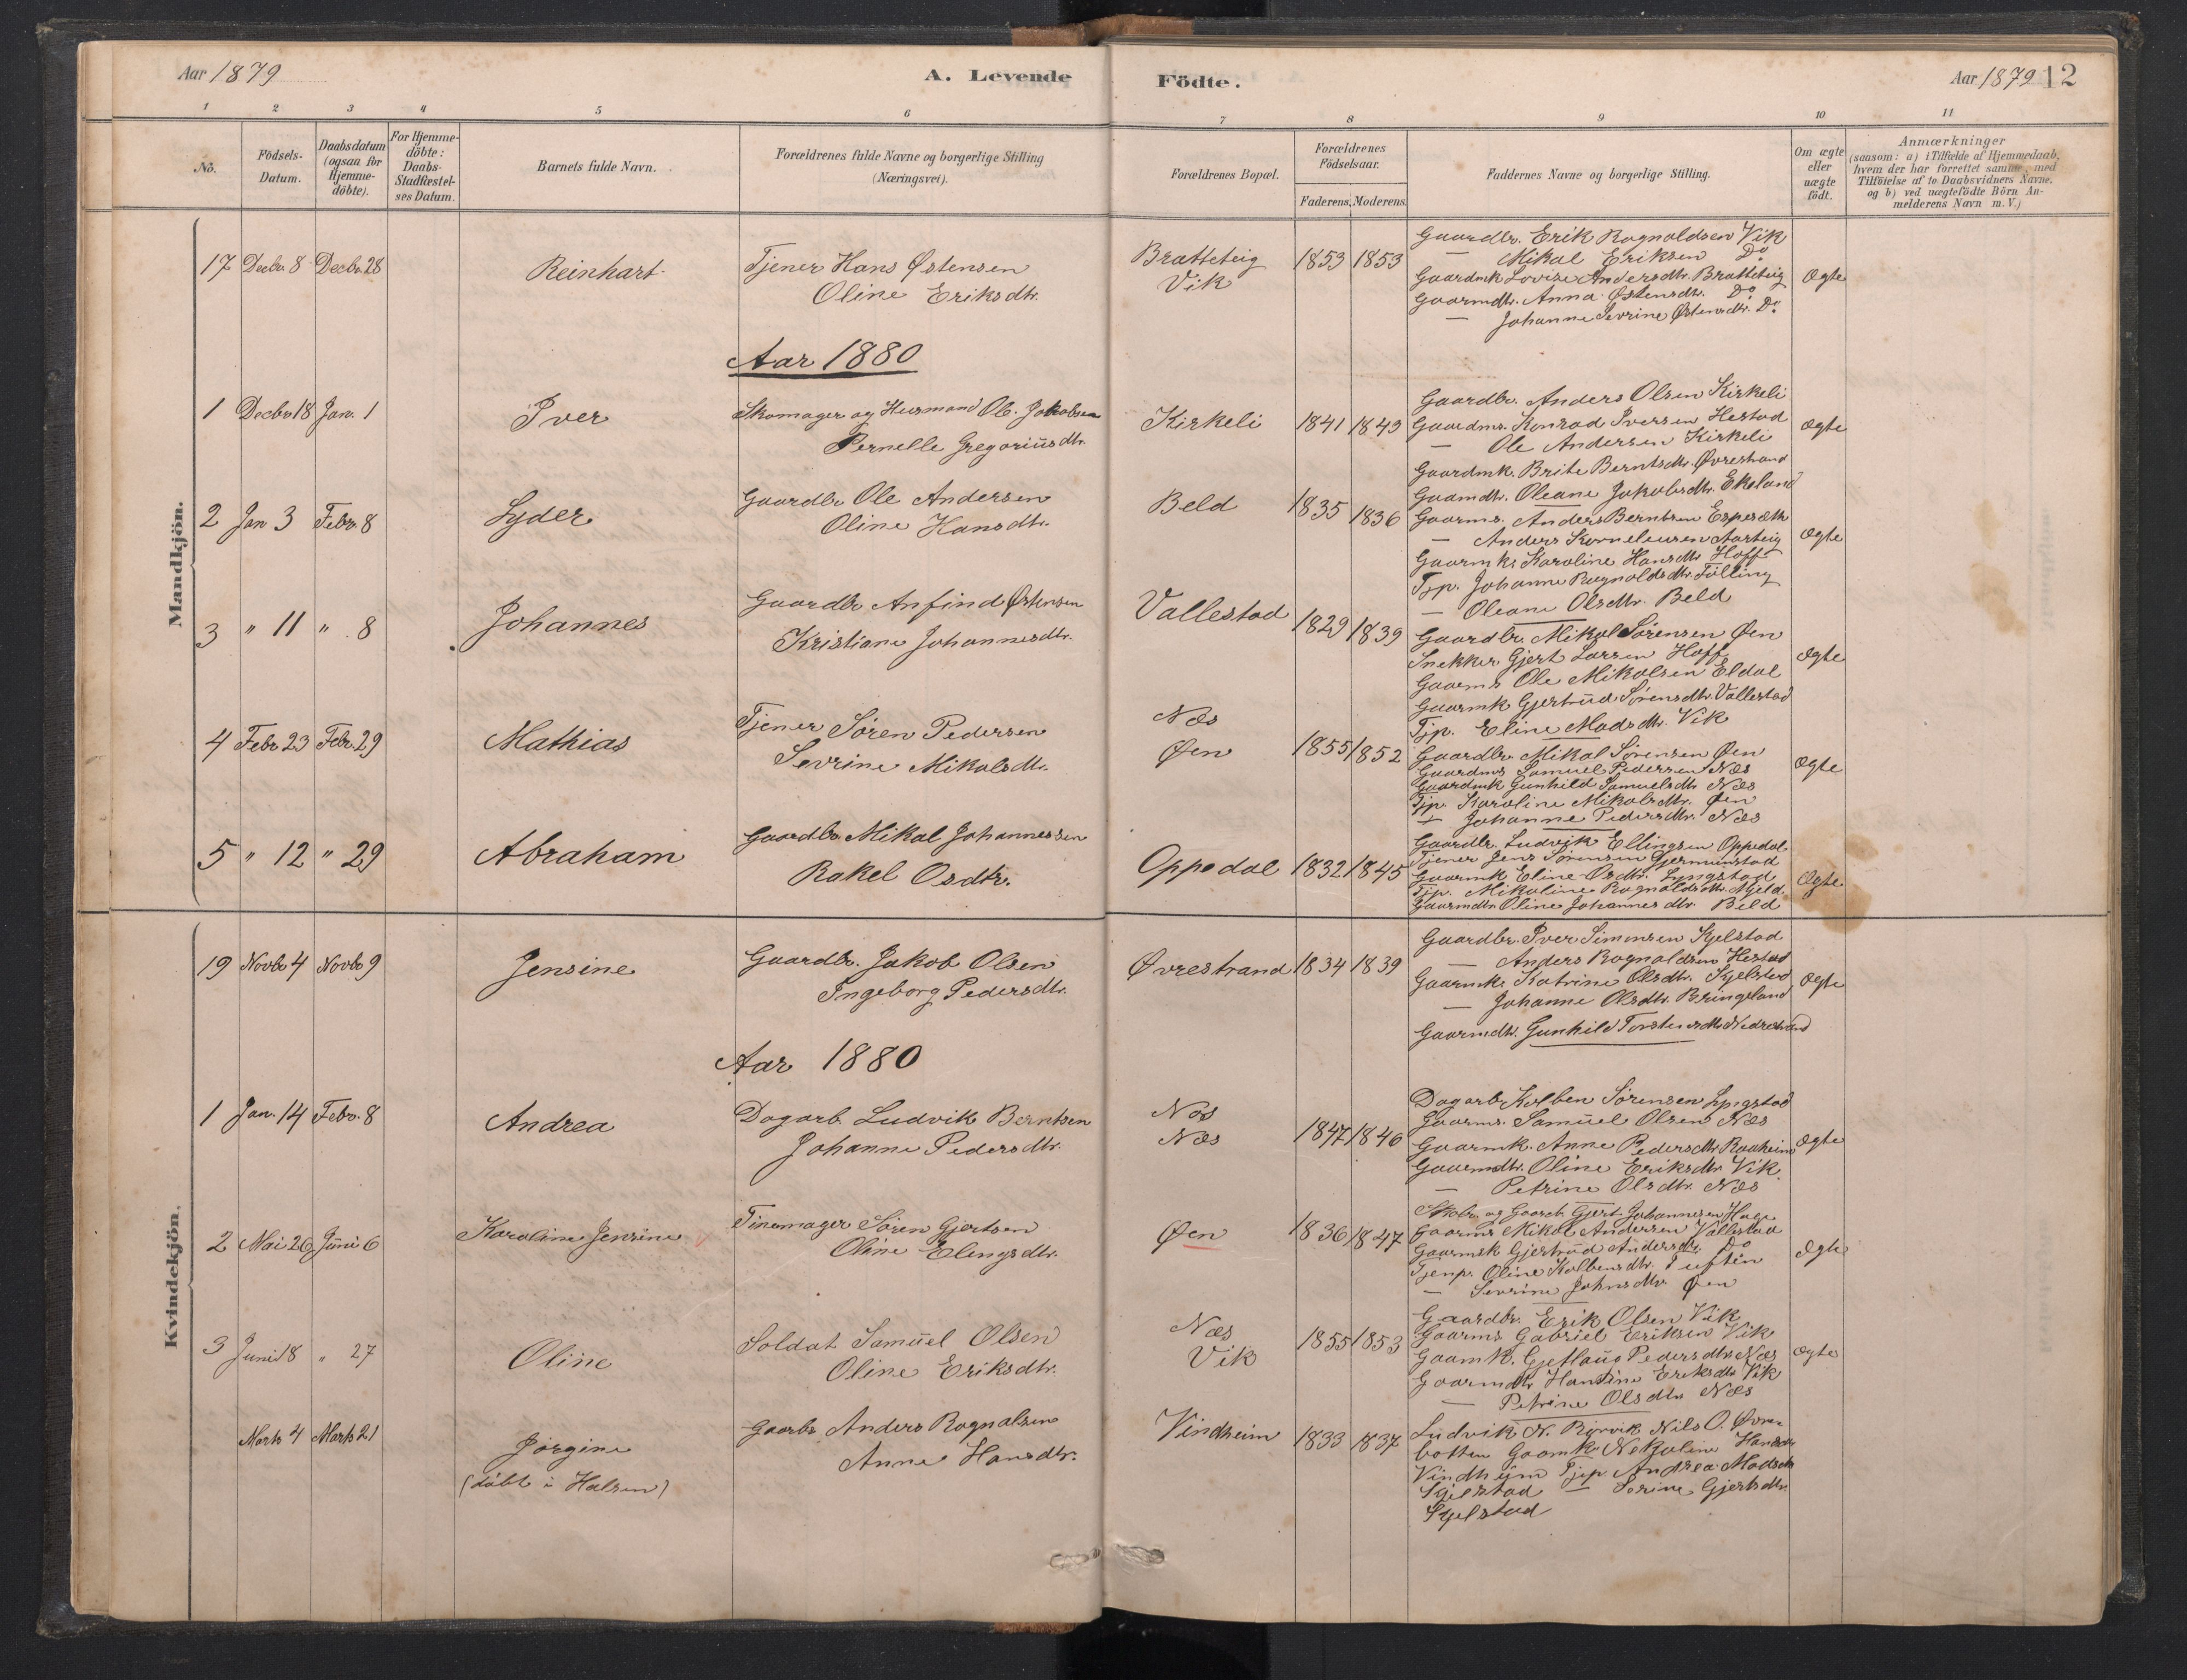 Aar 1879 A. Levende Födte. Aar 1879 12
1 2 3 4 5 6 7 8 9 10 11
No. Födsels-Datum. Daabsdatum (ogsaa for Hjemme-döbte). For Hjemme-döbte: Daabs-Stadfæstel-ses Datum. Barnets fulde Navn. Forældrenes fulde Navne og borgerlige Stilling (Næringsvei). Forældrenes Bopæl. Forældrenes Födselsaar. Faderens. Moderens. Faddernes Navne og borgerlige Stilling. Om ægte eller uægte födt. Anmærkninger (saasom: a) i Tilfælde af Hjemmedaab, hvem der har forrettet samme, med Tilföielse af to Daabsvidners Navne, og b) ved uægtefödte Börn Anmelderens Navn m. V.)
Mandkjön.
17 Decbr. 8 Decbr. 28 Reinhart Tjener Hans Østensen
Oline Eriksdtr.
Bratteteig
Vik
1853 1853
Gaardbr. Erik Ragnoldsen Vik
— Mikal Eriksen Do
Gaardmk Lovise Andersdtr. Bratteteig
Gaarmdtr. Anna Østensdtr. Do
— Johanne Sevrine Østensdtr. Do
Ægte
Aar 1880
1 Decbr 18 Jan. 1 Iver Skomager og Husmand Ol. Jakobsen
Pernelle Gregoriusdtr.
Kirkeli 1841 1843
Gaardbr. Anders Olsen Kirkeli
Gaardms. Konrad Iversen Hestad
— Ole Andersen Kirkeli
Gaardmk. Brite Berntsdtr. Øvrestrand
Gaarmdtr. Oleane Jakobsdtr. Ekeland
Ægte
2 Jan 3 Febr. 8 Lyder Gaardbr Ole Andersen
Oline Hansdtr.
Beld 1835 1836
Gaarms. Anders Berntsen Espesæth
— Anders Korneleusen Aarteig
Gaarmk. Karoline Hansdtr Hoff
Tjp. Johanne Ragnoldsdtr. Fölling
— Oleane Olsdtr. Beld
Ægte
3 " 11 " 8 Johannes Gaardbr Anfind Østensen
Kristiane Johannesdtr.
Vallestad 1829 1839
Gaardbr. Mikal Sørensen Øen
Snekker Gjert Larsen Hoff
Gaarms Ole Mikalsen Eldal
Gaarmk Gjertrud Sørensdtr. Vallestad
Tjp. Eline Madsdtr. Vik
Ægte
4 Febr 23 Febr. 29 Mathias Tjener Søren Pedersen
Sevrine Mikalsdtr.
Næs
Øen
1855 1852
Gaardbr. Mikal Sørensen Øen
Gaardms Samuel Pedersen Næs
Gaardmk Gunhild Samuelsdtr Næs
Tjp. Karoline Mikalsdtr. Øen
— Johanne Pedersdtr. Næs
Ægte
5 " 12 " 29 Abraham Gaardbr Mikal Johannessen
Rakel Osdtr.
Oppedal 1832 1845
Gaardbr. Ludvik Ellingsen Oppedal
Tjener Jens Sørensen Gjermunstad
Gaarmk Eline Osdtr. Lyngstad
Tjp. Mikaline Ragnoldsdtr. Mjeld
Gaarmdtr. Oline Johannesdtr. Beld
Ægte
Kvindekjön.
19 Novbr 4 Novbr 9 Jensine Gaardbr. Jakob Olsen
Ingeborg Pedersdtr.
Øvrestrand 1834 1839
Gaardbr. Iver Simonsen Kjelstad
— Anders Ragnoldsen Hestad
Gaarmk. Katrine Olsdtr. Kjelstad
— Johanne Olsdtr. Bringeland
Gaarmdtr. Gunhild Torstensdtr Nedrestrand
Ægte
Aar 1880
1 Jan. 14 Febr. 8 Andrea Dagarb. Ludvik Berntsen
Johanne Pedersdtr.
Næs
Næs
1847 1846
Dagarb. Kolben Sørensen Lyngstad
Gaarms. Samuel Olsen Næs
Gaarmk. Anne Pedersdtr. Raaheim
Gaarmdtr. Oline Eriksdtr. Vik.
— Petrine Olsdtr. Næs
Ægte
2 Mai 26 Juni 6 Karoline Jensine Tinemager Sören Gjertsen
Oline Elingsdtr.
Øen 1836 1847
og Gjert Johannesen Hage
Gaarms Mikal Andersen Vallestad
Gaarmk Gjertrud Andersdtr Do
Tjenp. Oline Kolbensdtr. Tuften
— Sevrine Johnsdtr. Øen
Ægte
3 Juni 18 " 27 Oline Soldat Samuel Olsen
Oline Eriksdtr.
Næs
Vik
1855 1853
Gaardbr. Erik Olsen Vik
Gaarms Gabriel Eriksen Vik
Gaarmk. Gjetlaug Pedersdtr. Næs
Gaarmdtr Hansine Eriksdtr Vik
— Petrine Olsdtr Næs
Ægte
Marts 4 Marts 21 Jørgine
(döbt i Halsen)
Gaarbr Anders Ragnalsen
Anne Hansdtr.
Vindheim 1833 1837
Ludvik N. Rörvik Nils O. Øvre-
botten Gaarmk Nekoline Hansdtr
Vindheim Tjp. Andrea Madsdtr
Kjelstad — Sorine Gjertsdtr.
Kjelstad